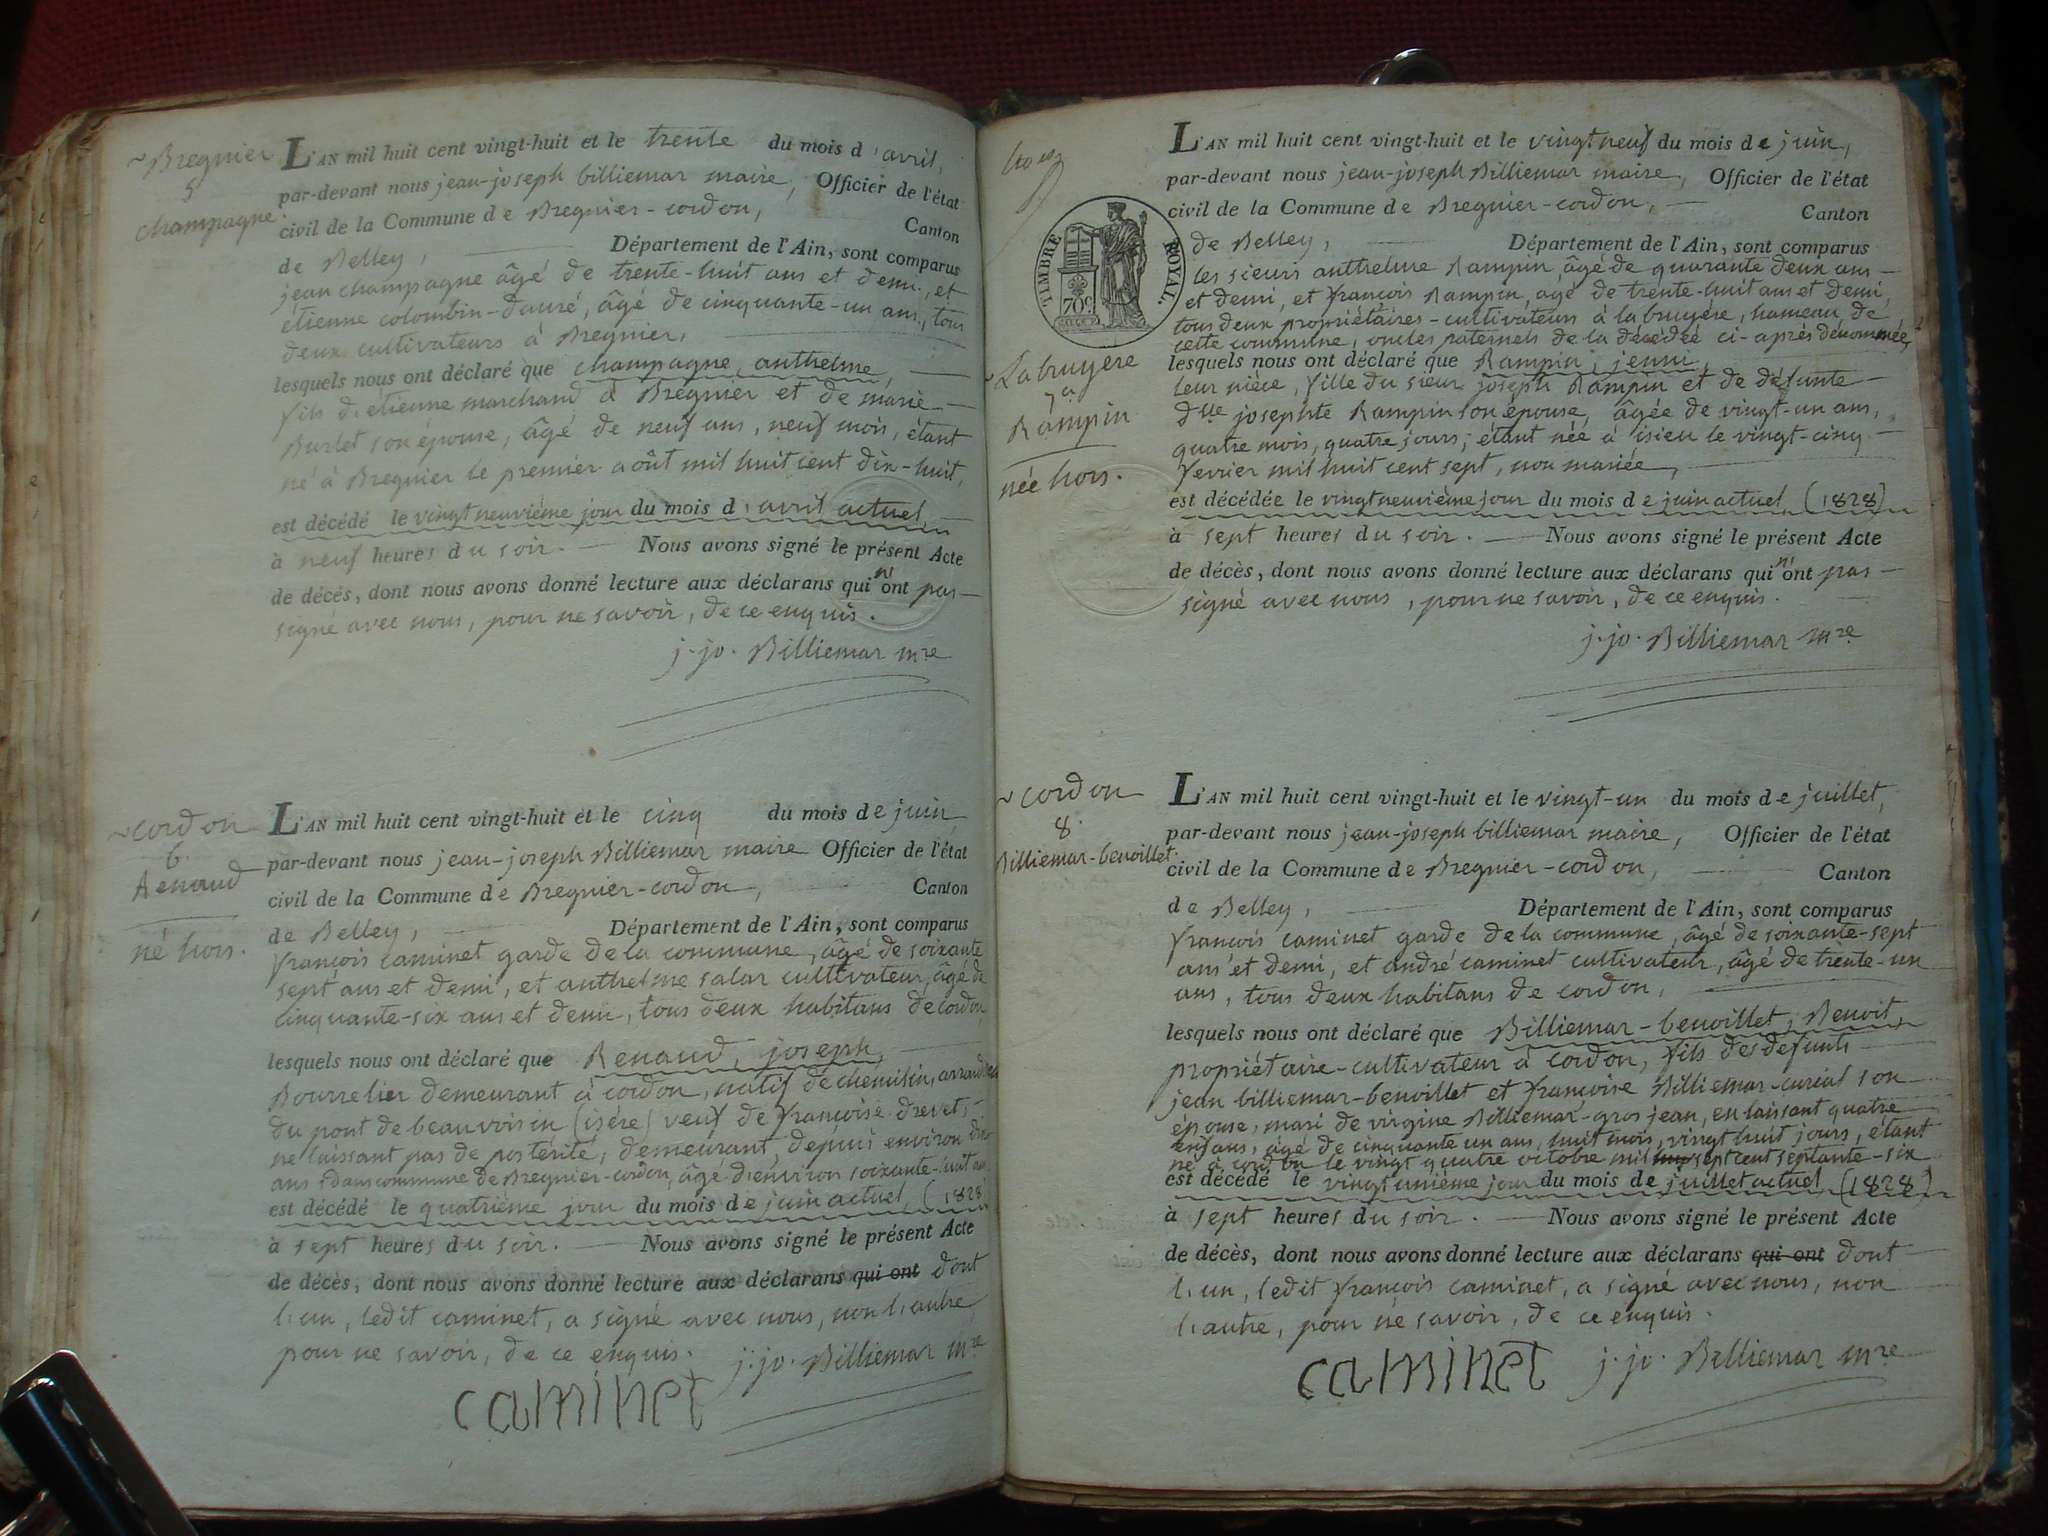 ~Bregnier
5
champagne.
L'AN mil huit cent vingt-huit et le trente du mois d'avril,
par-devant nous jean-joseph billiemar maire, Officier de l'état
civil de la Commune de Bregnier-cordon, Canton
de Belley, Département de l'Ain, sont comparus
jean champagne âgé de trente-huit ans et demi, et
étienne colombin-dauré, âgé de cinquante-un ans, tous
deux cultivateurs à Bregnier,
lesquels nous ont déclaré que champagne, anthelme,
fils d'etienne marchand à Bregnier et de marie
Burlet son épouse, âgé de neuf ans, neuf mois, étant
né à Bregnier le premier août mil huit cent dix-huit,
est décédé le vingt neuvième jour du mois d'avril actuel
à neuf heures du soir. Nous avons signé le présent Acte
de décès, dont nous avons donné lecture aux déclarans qui n'ont pas
signé avec nous, pour ne savoir, de ce enquis.
j. jo. Billiemar mre
~cordon
6.
Renaud
né hors.
L'AN mil huit cent vingt-huit et le cinq du mois de juin
par-devant nous jean-joseph Billiemar maire Officier de l'état
civil de la Commune de Bregnier-cordon, Canton
de Belley, Département de l'Ain, sont comparus
françois caminet garde de la commune, âgé de soixante
sept ans et demi, et anthelme salar cultivateur, âgé de
cinquante-six ans et demi, tous deux habitans de cordon,
lesquels nous ont déclaré que Renaud, joseph,
Bourrelier demeurant à cordon, natif de chemilin,
du pont de beauvoisin (isére) veuf de françoise drevet,
ne laissant pas de postérité, demeurant, depuis environ
ans, commune de Bregnier-cordon, âgé d'environ soixante-huit ans
est décédé le quatriéme jour du mois de juin actuel (1828
à sept heures du soir. Nous avons signé le présent Acte
de décès, dont nous avons donné lecture aux déclarans qui ont dont
l'un, ledit caminet, a signé avec nous, non l'autre,
pour ne savoir, de ce enquis. j. jo. Billiemar mre
caminet
TIMBRE ROYAL.
70c
~Labruyere
7
Rampin
née hors.
L'AN mil huit cent vingt-huit et le vingt neuf du mois de juin,
par-devant nous jean-joseph Billiemar maire, Officier de l'état
civil de la Commune de Bregnier-cordon, Canton
de Belley, Département de l'Ain, sont comparus
les sieurs anthelme Rampin âgé de quarante deux ans
et demi, et françois Rampin, agé de trente-huit ans et demi,
tous deux propriétaires-cultivateurs à labruyére, hameau de
cette commune, oncles paternels de la décédée ci-aprés dénommée,
lesquels nous ont déclaré que Rampin, jenni,
leur niéce, fille du sieur joseph Rampin et de défunte
dlle josephte Rampin son épouse, âgée de vingt-un ans,
quatre mois, quatre jours; étant née à isieu le vingt-cinq
fevrier mil huit cent sept, non mariée,
est décédée le vingt neuviéme jour du mois de juin actuel (1828)
à sept heures du soir. Nous avons signé le présent Acte
de décès, dont nous avons donné lecture aux déclarans qui n'ont pas
signé avec nous, pour ne savoir, de ce enquis.
j. jo. Billiemar mre
~cordon
8.
Billiemar-benoillet.
L'AN mil huit cent vingt-huit et le vingt-un du mois de juillet,
par-devant nous jean-joseph billiemar maire, Officier de l'état
civil de la Commune de Bregnier-cordon, Canton
de Belley, Département de l'Ain, sont comparus
françois caminet garde de la commune, âgé de soixante-sept
ans et demi, et andré caminet cultivateur, âgé de trente-un
ans, tous deux habitans de cordon,
lesquels nous ont déclaré que Billiemar-benoillet, Benoit,
propriétaire-cultivateur à cordon, fils des defunts
jean billiemar-benoillet et françoise Billiemar-curial son
épouse, mari de virgine Billiemar-gros jean, en laissant quatre
enfans, âgé de cinquante un ans, huit mois, vingt huit jours, étant
né à cordon le vingt quatre octobre mil sept cent septante-six
est décédé le vingt uniéme jour du mois de juillet actuel (1828)
à sept heures du soir. Nous avons signé le présent Acte
de décès, dont nous avons donné lecture aux déclarans qui ont dont
l'un, ledit françois caminet, a signé avec nous, non
l'autre, pour ne savoir, de ce enquis.
caminet j. jo. Billiemar mre